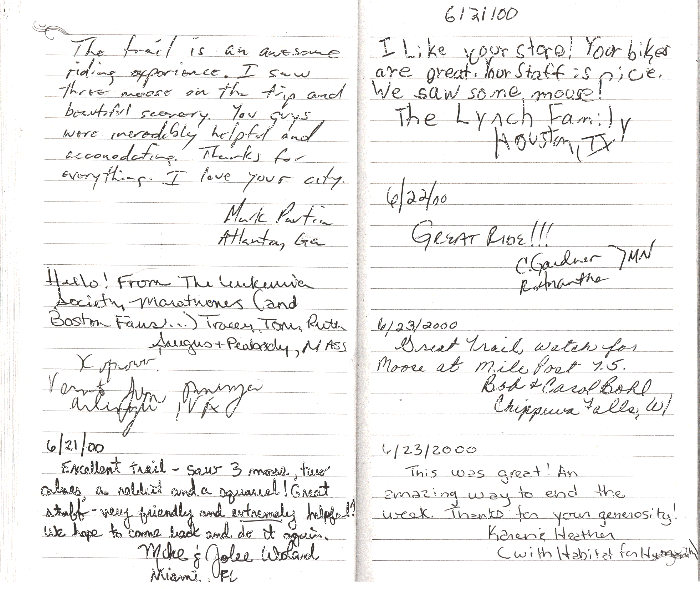 The trail is an awesome
riding experience. I saw
three moose on the trip and
beautiful scenery. You guys
were incredibly helpful and
accomodating. Thanks for
everything. I love your city.
Mark
Atlanta, Ga
Hello! From The Leukemia
Society Marathoners (and
Boston Fans...) Tracey, Tom, Ruth
Saugus + Peabody, MASS
Arlington, VA
6/21/00
Excellent trail - saw 3 moose, two
calves, a rabbit and a squirrel! Great
staff - very friendly and extremely helpful!
We hope to come back and do it again.
Mike & Jolee
Miami, FL
6/21/00
I Like your store! Your bikes
are great. Your Staff is nice.
We saw some moose!
The Lynch Family
Houston, TX
6/22/00
GREAT RIDE!!!
C. Gardner } MN
6/23/2000
Great Trail watch for
Moose at Mile Post 7.5.
Bob & Carol Bohl
Chippewa Falls, WI
6/23/2000
This was great! An
amazing way to end the
week. Thanks for your generosity!
Heather
(with Habitat for Humanity)